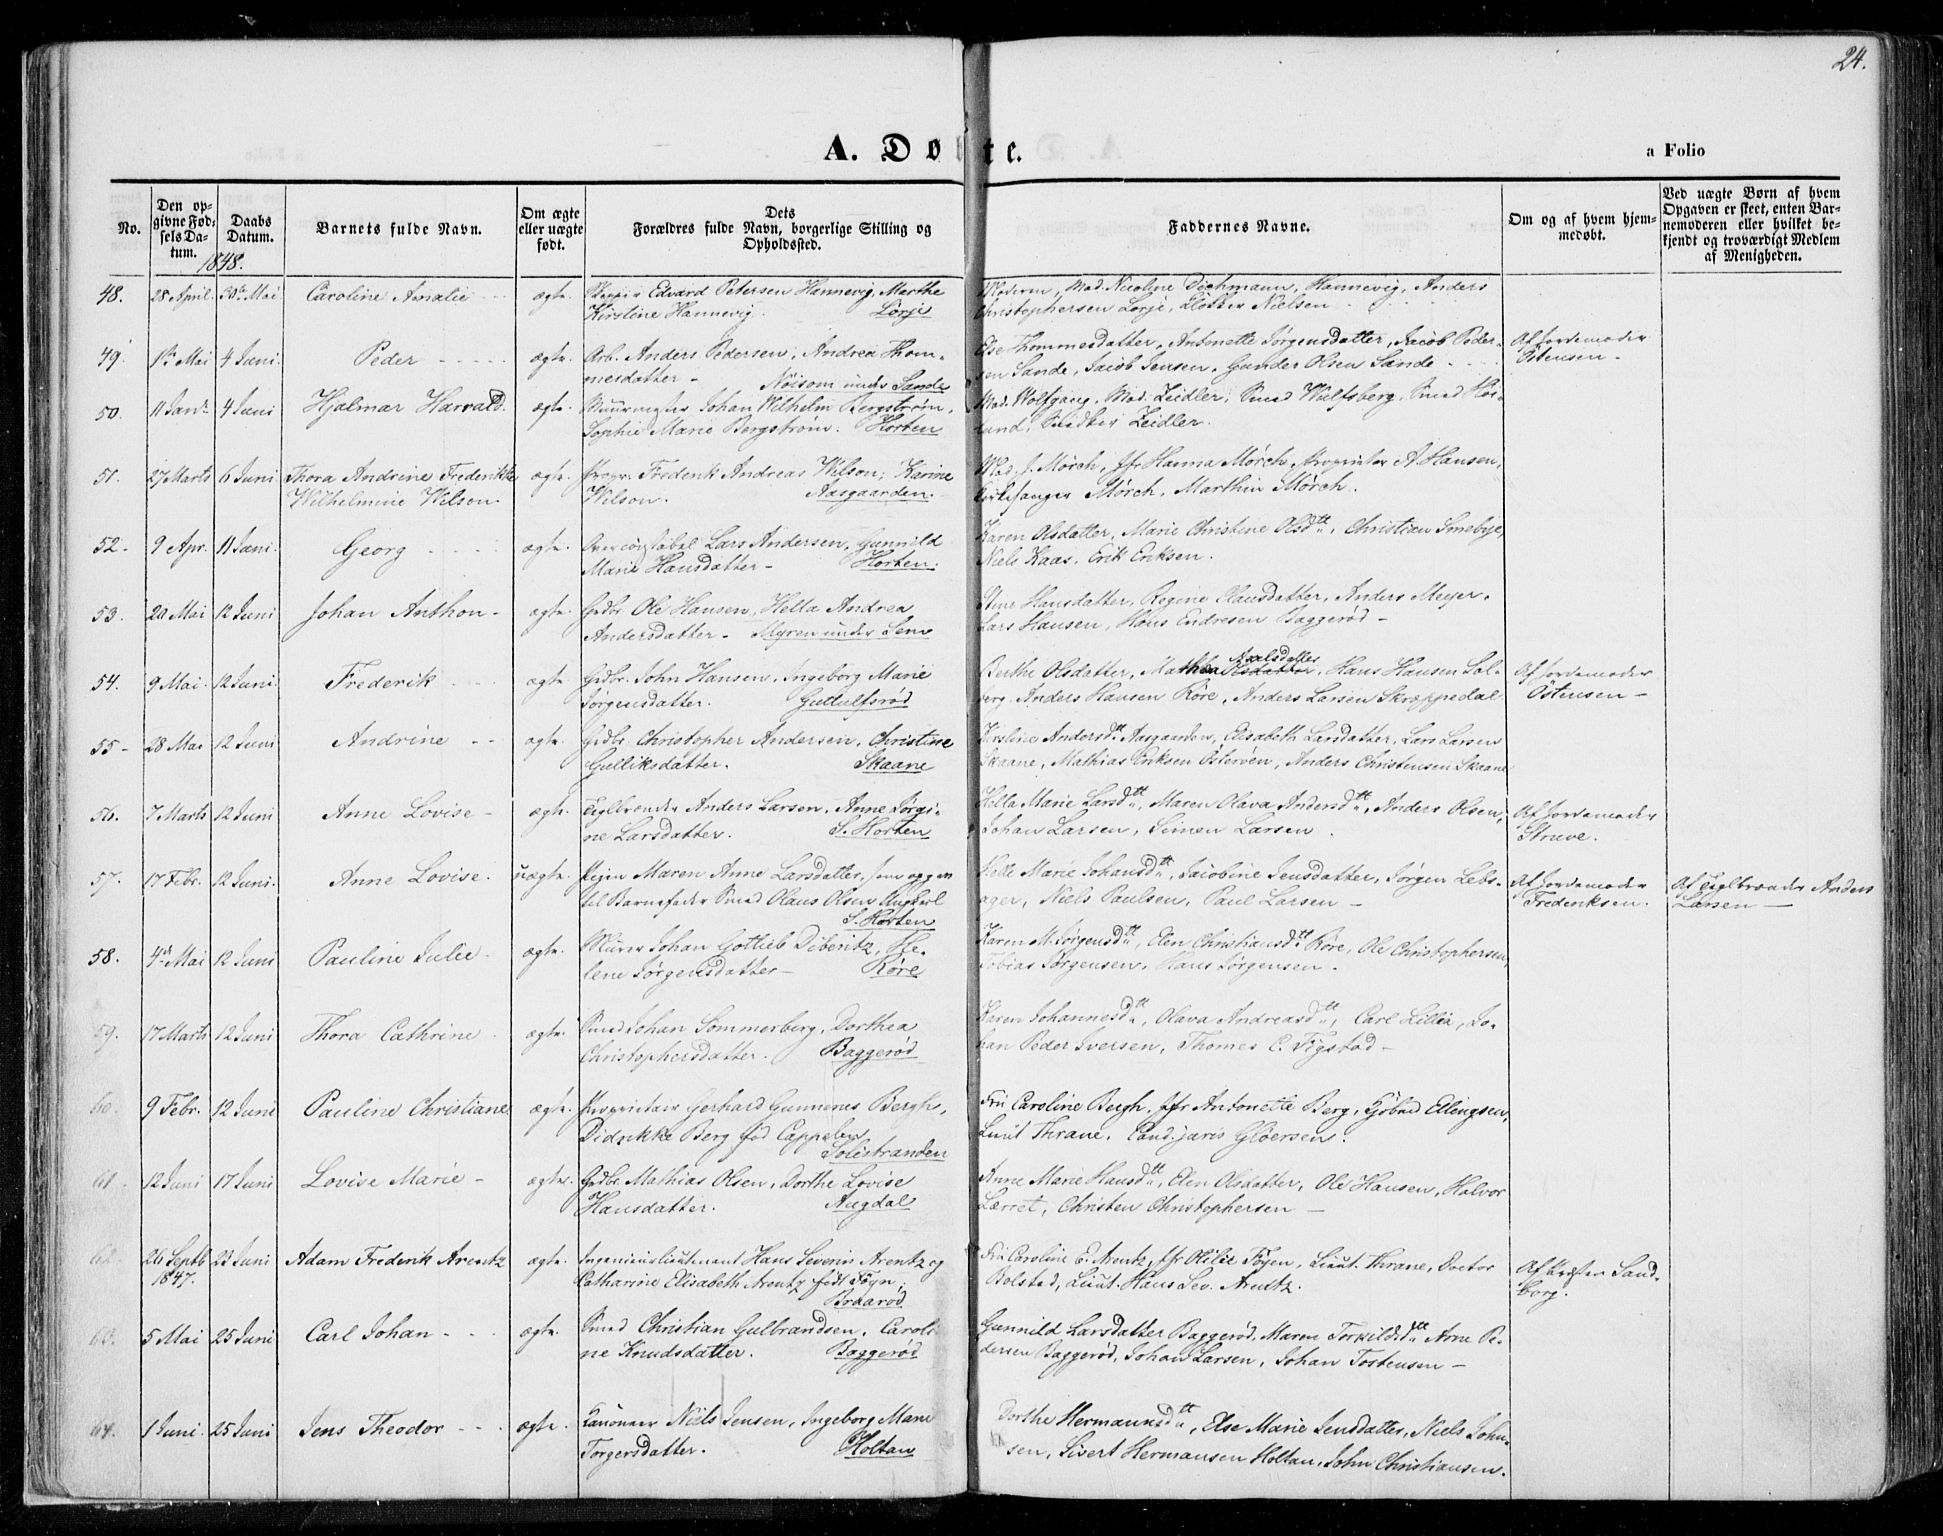 24.
A. Døbte.
a Folio
No.
Den op-
givne Fød-
sels Da-
tum.
Daabs
Datum.
1848.
Barnets fulde Navn.
Om ægte
eller uægte
født.
Dets
Forældres fulde Navn, borgerlige Stilling og
Opholdssted.
Faddernes Navne.
Om og af hvem hjem-
medøbt.
Ved uægte Børn af hvem
Opgaven er skeet, enten Bar-
nemoderen eller hvilket be-
kjendt og troværdigt Medlem
af Menigheden.
48. 28 April. 30te Mai Caroline Amalie ægte. Edvard Petersen Hannevig, Marthe Moderen, Mad. Nicoline Dichmann, Hannevig, Anders
Kirstine Hannevig. Lørje Christophersen Lørje, Klokker Nielsen
49. 1ste Mai 4 Juni. Peder ægte. Arb. Anders Pedersen, Andrea Thom- Else Thommesdatter, Antonette Jørgensdatter, Jacob Peder- Af Jordemoder
mesdatter - Nöisom under Sande sen Sande, Jacob Jensen, Gunder Olsen Sande Östensen -
50. 11 Janr. 4 Juni Hjalmar Harvald. ægte. Muurmester Johan Wilhelm Bergstrøm, Mad. Wolfgang, Mad. Zeidler, Smed Wulfsberg, Smed
Sophie Marie Bergstrøm. Horten lund, Snedker Zeidler.
51. 27 Marts 6 Juni Thora Andrine Frederikke ægte. Propr. Frederik Andreas Wilson, Karine Mad. J. Mørch, Jfr Hanna Mørch, Proprietær A. Hansen,
Wilhelmine Wilson. Wilson. Aasgaarden. Kirkesanger Mørch, Marthin Mørch.
52. 9 Apr. 11 Juni. Georg ægte. Overconstabel Lars Andersen, Gunnild Karen Olsdatter, Marie Christine Olsdtt, Christian Smebye,
Marie Hansdatter - Horten. Niels Kaas, Erik Eriksen.
53. 20 Mai 12 Juni Johan Anthon - ægte. Grdbr. Ole Hansen, Hella Andrea Stine Hansdatter, Regine Clausdatter, Anders Meyer,
Andersdatter - Myren under Sem Lars Hansen, Hans Endresen Baggerød -
54. 9 Mai. 12 Juni Frederik ægte Grdbr. John Hansen, Ingeborg Marie Berthe Olsdatter, Mathea Olsdatter Axelsdatter, Hans Hansen Sol- Af Jordemoder
Jörgensdatter. Guttulfsrød berg, Anders Hansen Röre, Anders Larsen Skreppedal Östensen -
55 - 28 Mai 12 Juni Andrine ægte. Grdbr. Christopher Andersen, Christine Kirstine Andersdtt Aasgaarden, Elisabeth Larsdatter, Lars Larsen
Gulliksdatter. Skaane Skaane, Mathias Eriksen Österøen, Anders Christensen Skaane
56. 7 Marts 12 Juni Anne Lovise - ægte. Teglbrænder Anders Larsen, Anne Jörgi- Hella Marie Larsdtt, Maren Olava Andersdtt, Anders Olsen, Af Jordemoder
ne Larsdatter. S. Horten Johan Larsen, Simen Larsen. Struve.
57. 17 Febr. 12 Juni. Anne Lovise. uægte Pigen Maren Anne Larsdatter, som opgav Helle Marie Johansdtt, Jacobine Jensdatter, Jørgen Lebs- Af Jordemoder Af Teglbrænder Anders
til Barnefader Smed Olaus Olsen Ungkarl ager, Niels Paulsen, Paul Larsen - Frederiksen. Larsen -
S. Horten
58. 4de Mai 12 Juni Pauline Julie. ægte. Murer Johan Gottlieb Diberitz, He- Karen M. Jørgensdtt, Elen Christiansdtt Röre, Ole Christophersen,
lene Jørgensdatter - Röre Tobias Jørgensen, Hans Jørgensen -
59. 17 Marts 12 Juni Thora Cathrine ægte. Smed Johan Sommerberg, Dorthea Karen Johannesdtt, Olava Andreasdtt, Carl Lilliö, Jo-
Christophersdatter. Baggerød han Peder Iversen, Thomes C. Tigstad -
60. 9 Febr. 12 Juni Pauline Christiane ægte. Proprietair Gerhard Gunnerus Bergh, Fru Caroline Bergh, Jfr Antonette Berg, Kjøbmd Ellingsen,
Didrikke Berg fød Cappelen Lieut Thrane, Cand. juris Gløersen.
Solestranden
61. 12 Juni 17 Juni Lovise Marie - ægte. Grdbr. Mathias Olsen, Dorthe Lovise Anne Marie Hansdtt, Elen Olsdatter, Ole Hansen, Halvor
Hansdatter. Augdal Lærret, Christen Christophersen -
62. 26 Septb 23 Juni Adam Frederik Arentz ægte. Ingenieurlieutenant Hans Severin Arentz og Fru Caroline E. Arentz, Jfr Otilie Föyen, Lieut. Thrane, Doctor Af Præsten Sand-
1847. Catharine Elisabeth Arentz født Föyn. Bolstad, Lieut. Hans Sev. Arentz. borg.
Braarød
63. 5 Mai 25 Juni Carl Johan ægte. Smed Christian Gulbrandsen, Caroli- Gunnild Larsdatter Baggerød, Maren Torkildsdtt, Arne Pe-
ne Knudsdatter. Baggerød dersen Baggerød, Johan Larsen, Johan Tostensen -
64. 1 Juni 25 Juni Jens Theodor ægte. Kanoneer Niels Jensen, Ingeborg Marie Dorthe Hermansdtt, Else Marie Jensdatter, Niels John-
Torgersdatter. Holtan sen, Sivert Hermansen Holtan, John Christiansen.